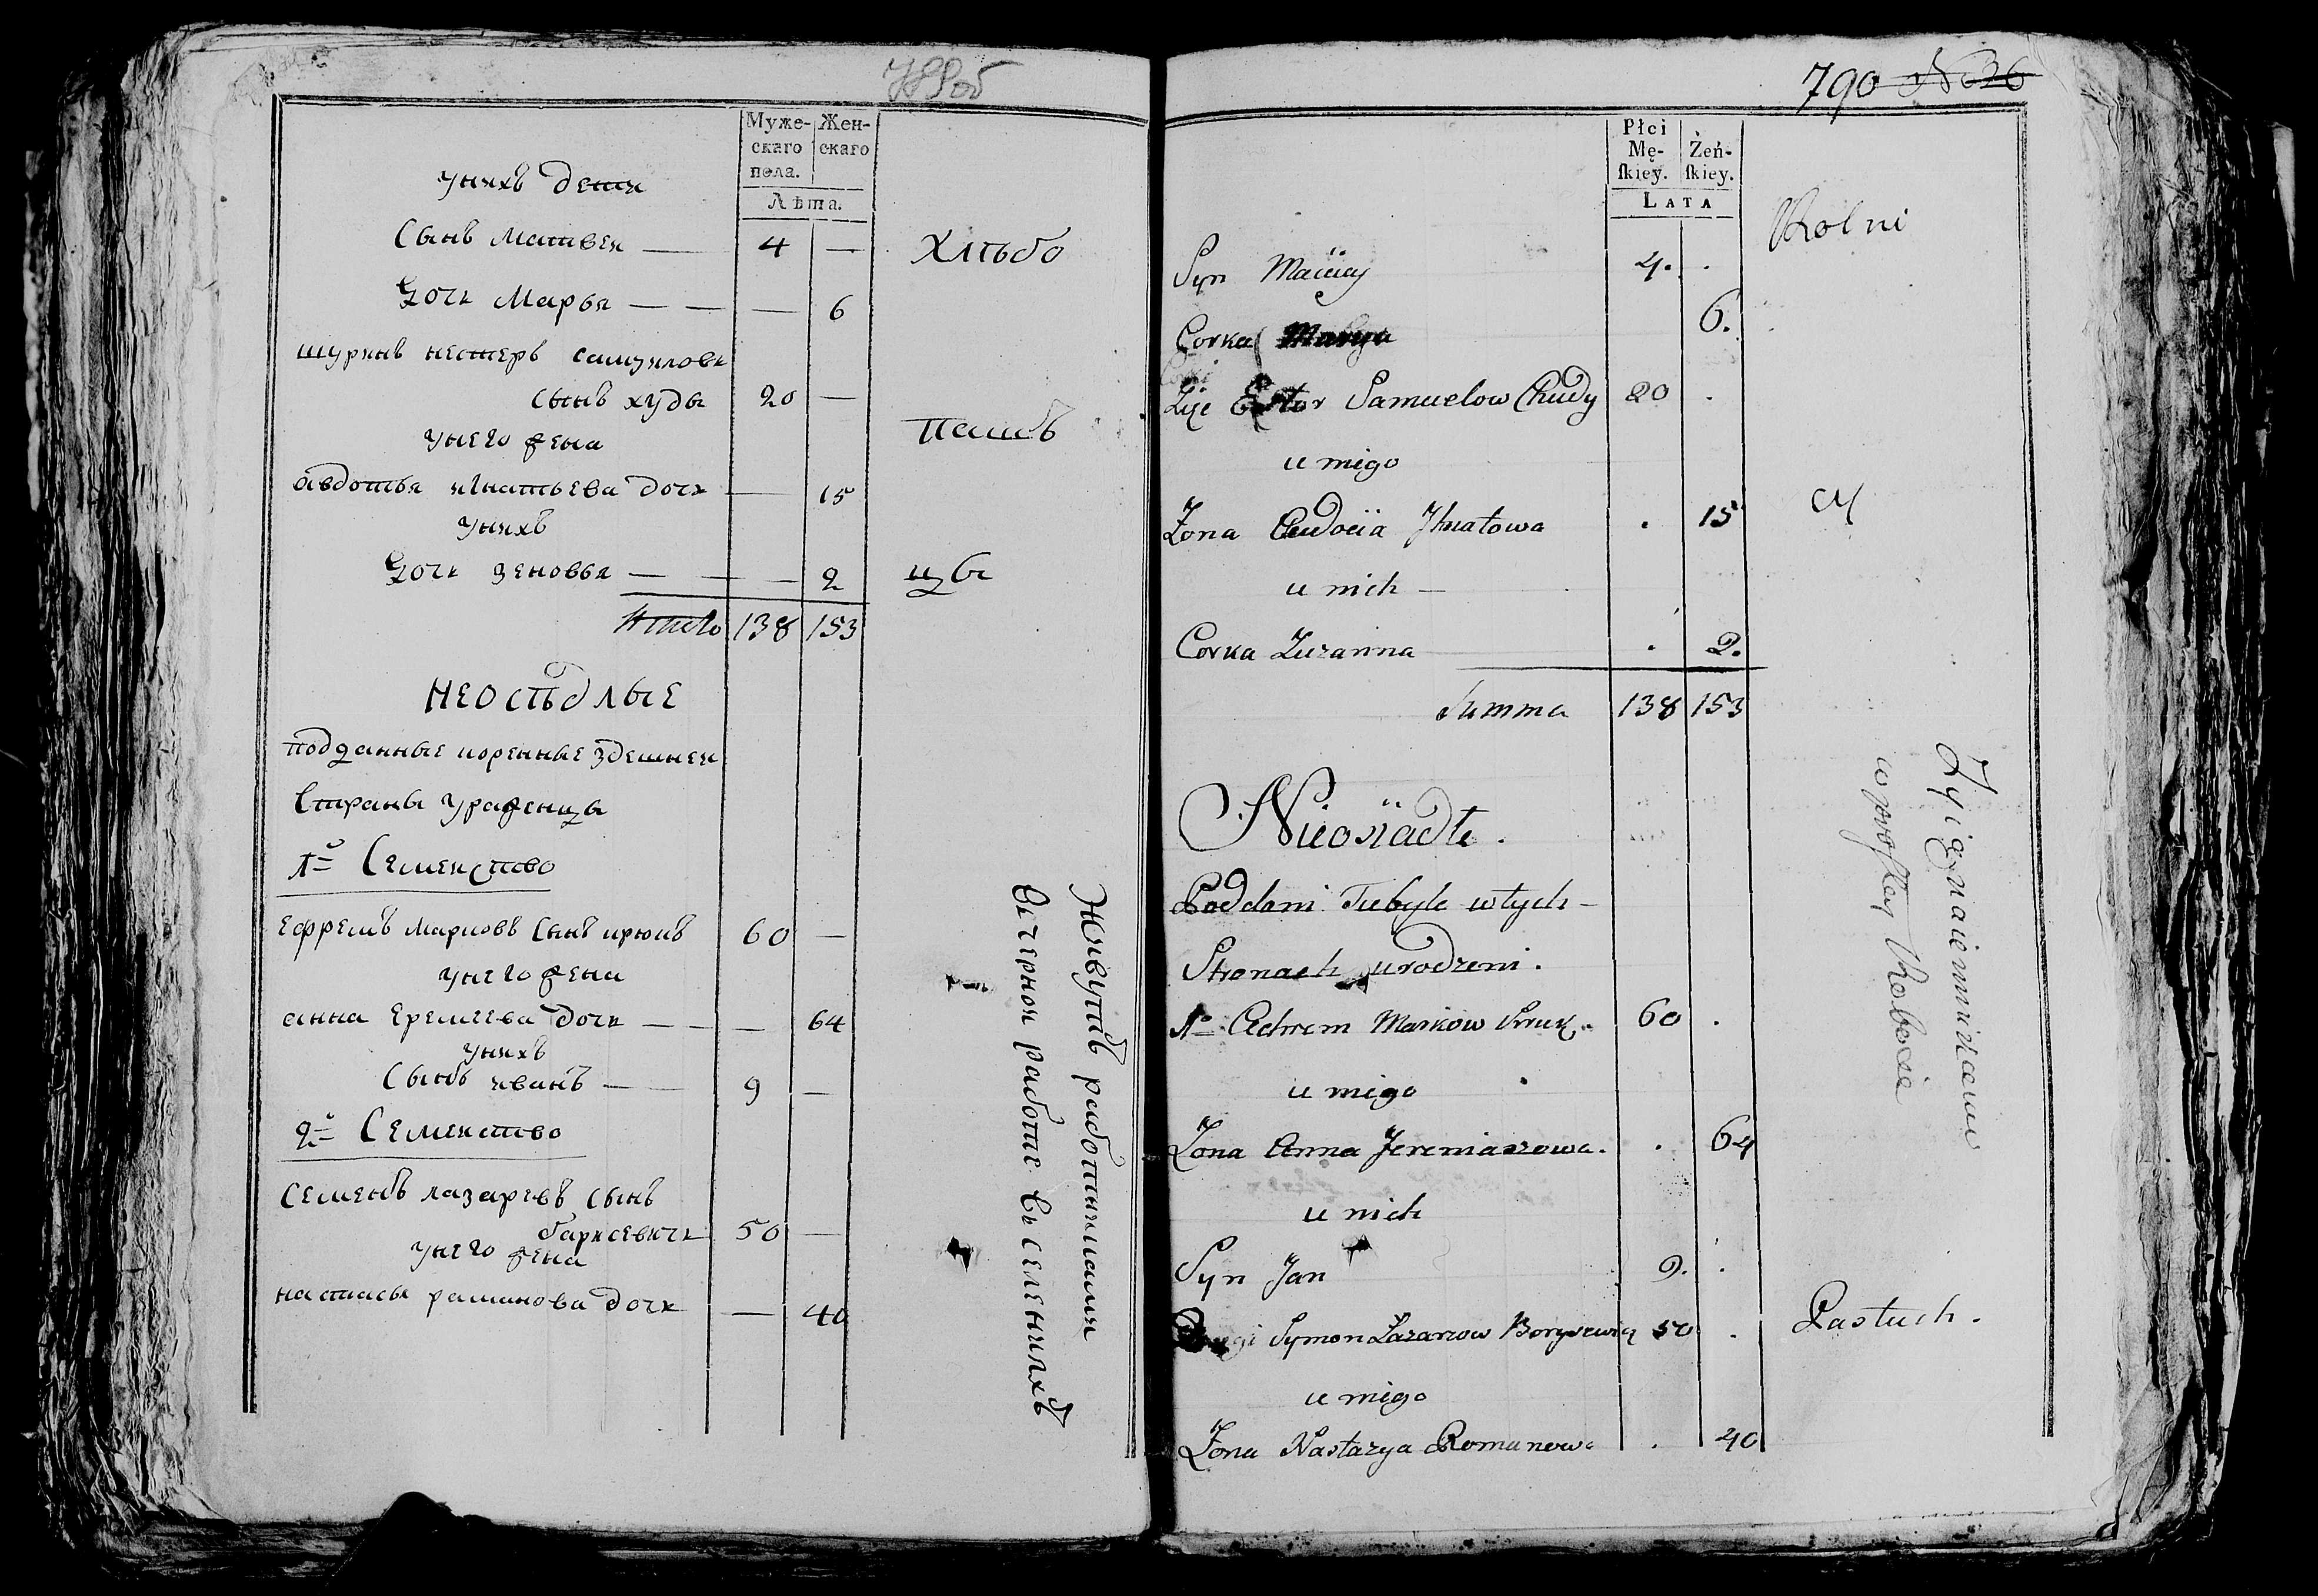 789об
Муже-
скаго
пола.
Жен-
скаго
Лѣта.
унихъ дети
Сынъ Матвеи — 4 —
Дочь Марья — — — 6
шуринъ нестеръ самуиловъ
сынъ худы 20 —
унего жена
авдотья игнатьева дочь — 15
унихъ
Дочь зеновья — — — 2
Итого 138 153
Хлѣбо
пашъ
цы
неосѣдлые
подданные коренные здешнеи
Страны уроженцы
1е Семеиство
ефремъ марковъ Сынъ крюкъ 60 —
унего жена
анна еремеева дочь — — — 64
унихъ
Сынъ иванъ — 9 —
2е Семеиство
семенъ лазаревъ сынъ
барисевичь 50 —
унего жена
настасья раманова дочь — 40
Живутъ работниками
вчерной работе въ селенияхъ
790 N 36
Płci
Mę-
ſkiey.
Żeń-
ſkiey.
LATA
Syn Maciey 4. .
Corka Marya 6.
Estor Samuelow Chudy 20 .
u niego
Zona Audocia Ihnatowa . 15
u nich —
Corka Zuzanna . 2.
Summa 138 153
Rolni
cy
Nieosiadłe.
Poddani Tubyle wtych
Stronach urodzeni.
1o Achrem Markow Kruk. 60 .
u niego
Zona Anna Jeremiaszowa. . 64
u nich
Syn Jan 9. .
Drugi Symon Łazarzow Borysewicz 50 .
u niego
Zona Nastazya Romanowa . 40
Zyią naiemnictwem
w prostey Robocie
Pastuch.